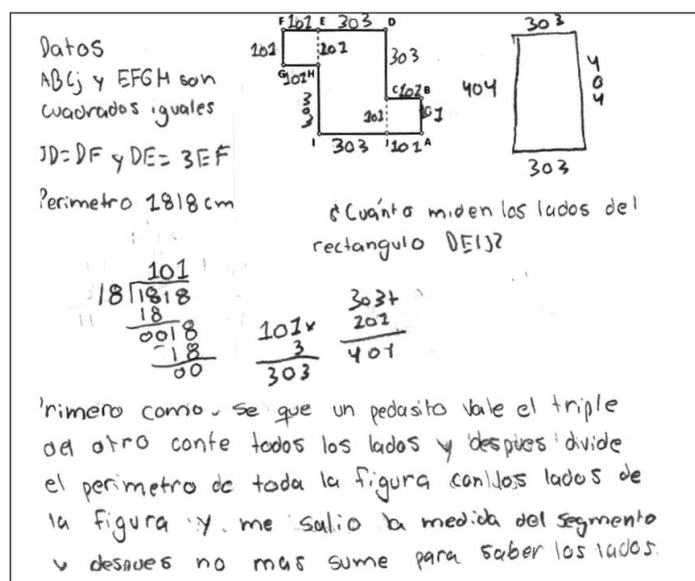 Datos
ABCj y EFGH son
cuadrados iguales
JD=DF y DE= 3EF
Perimetro 1818 cm
F 101 E 303 D
101 101 303
G 101 H C 101 B
303 101 101
I 303 J 101 A
303
404 404
303
¿Cuánto miden los lados del
rectangulo DEIJ?
101
18 1818
18
0018
-18
00
101x
3
303
303+
101
404
rimero como se que un pedasito vale el triple
del otro conte todos los lados y despues divide
el perimetro de toda la figura con los lados de
la figura y me salio la medida del segmento
y despues no mas sume para saber los lados.